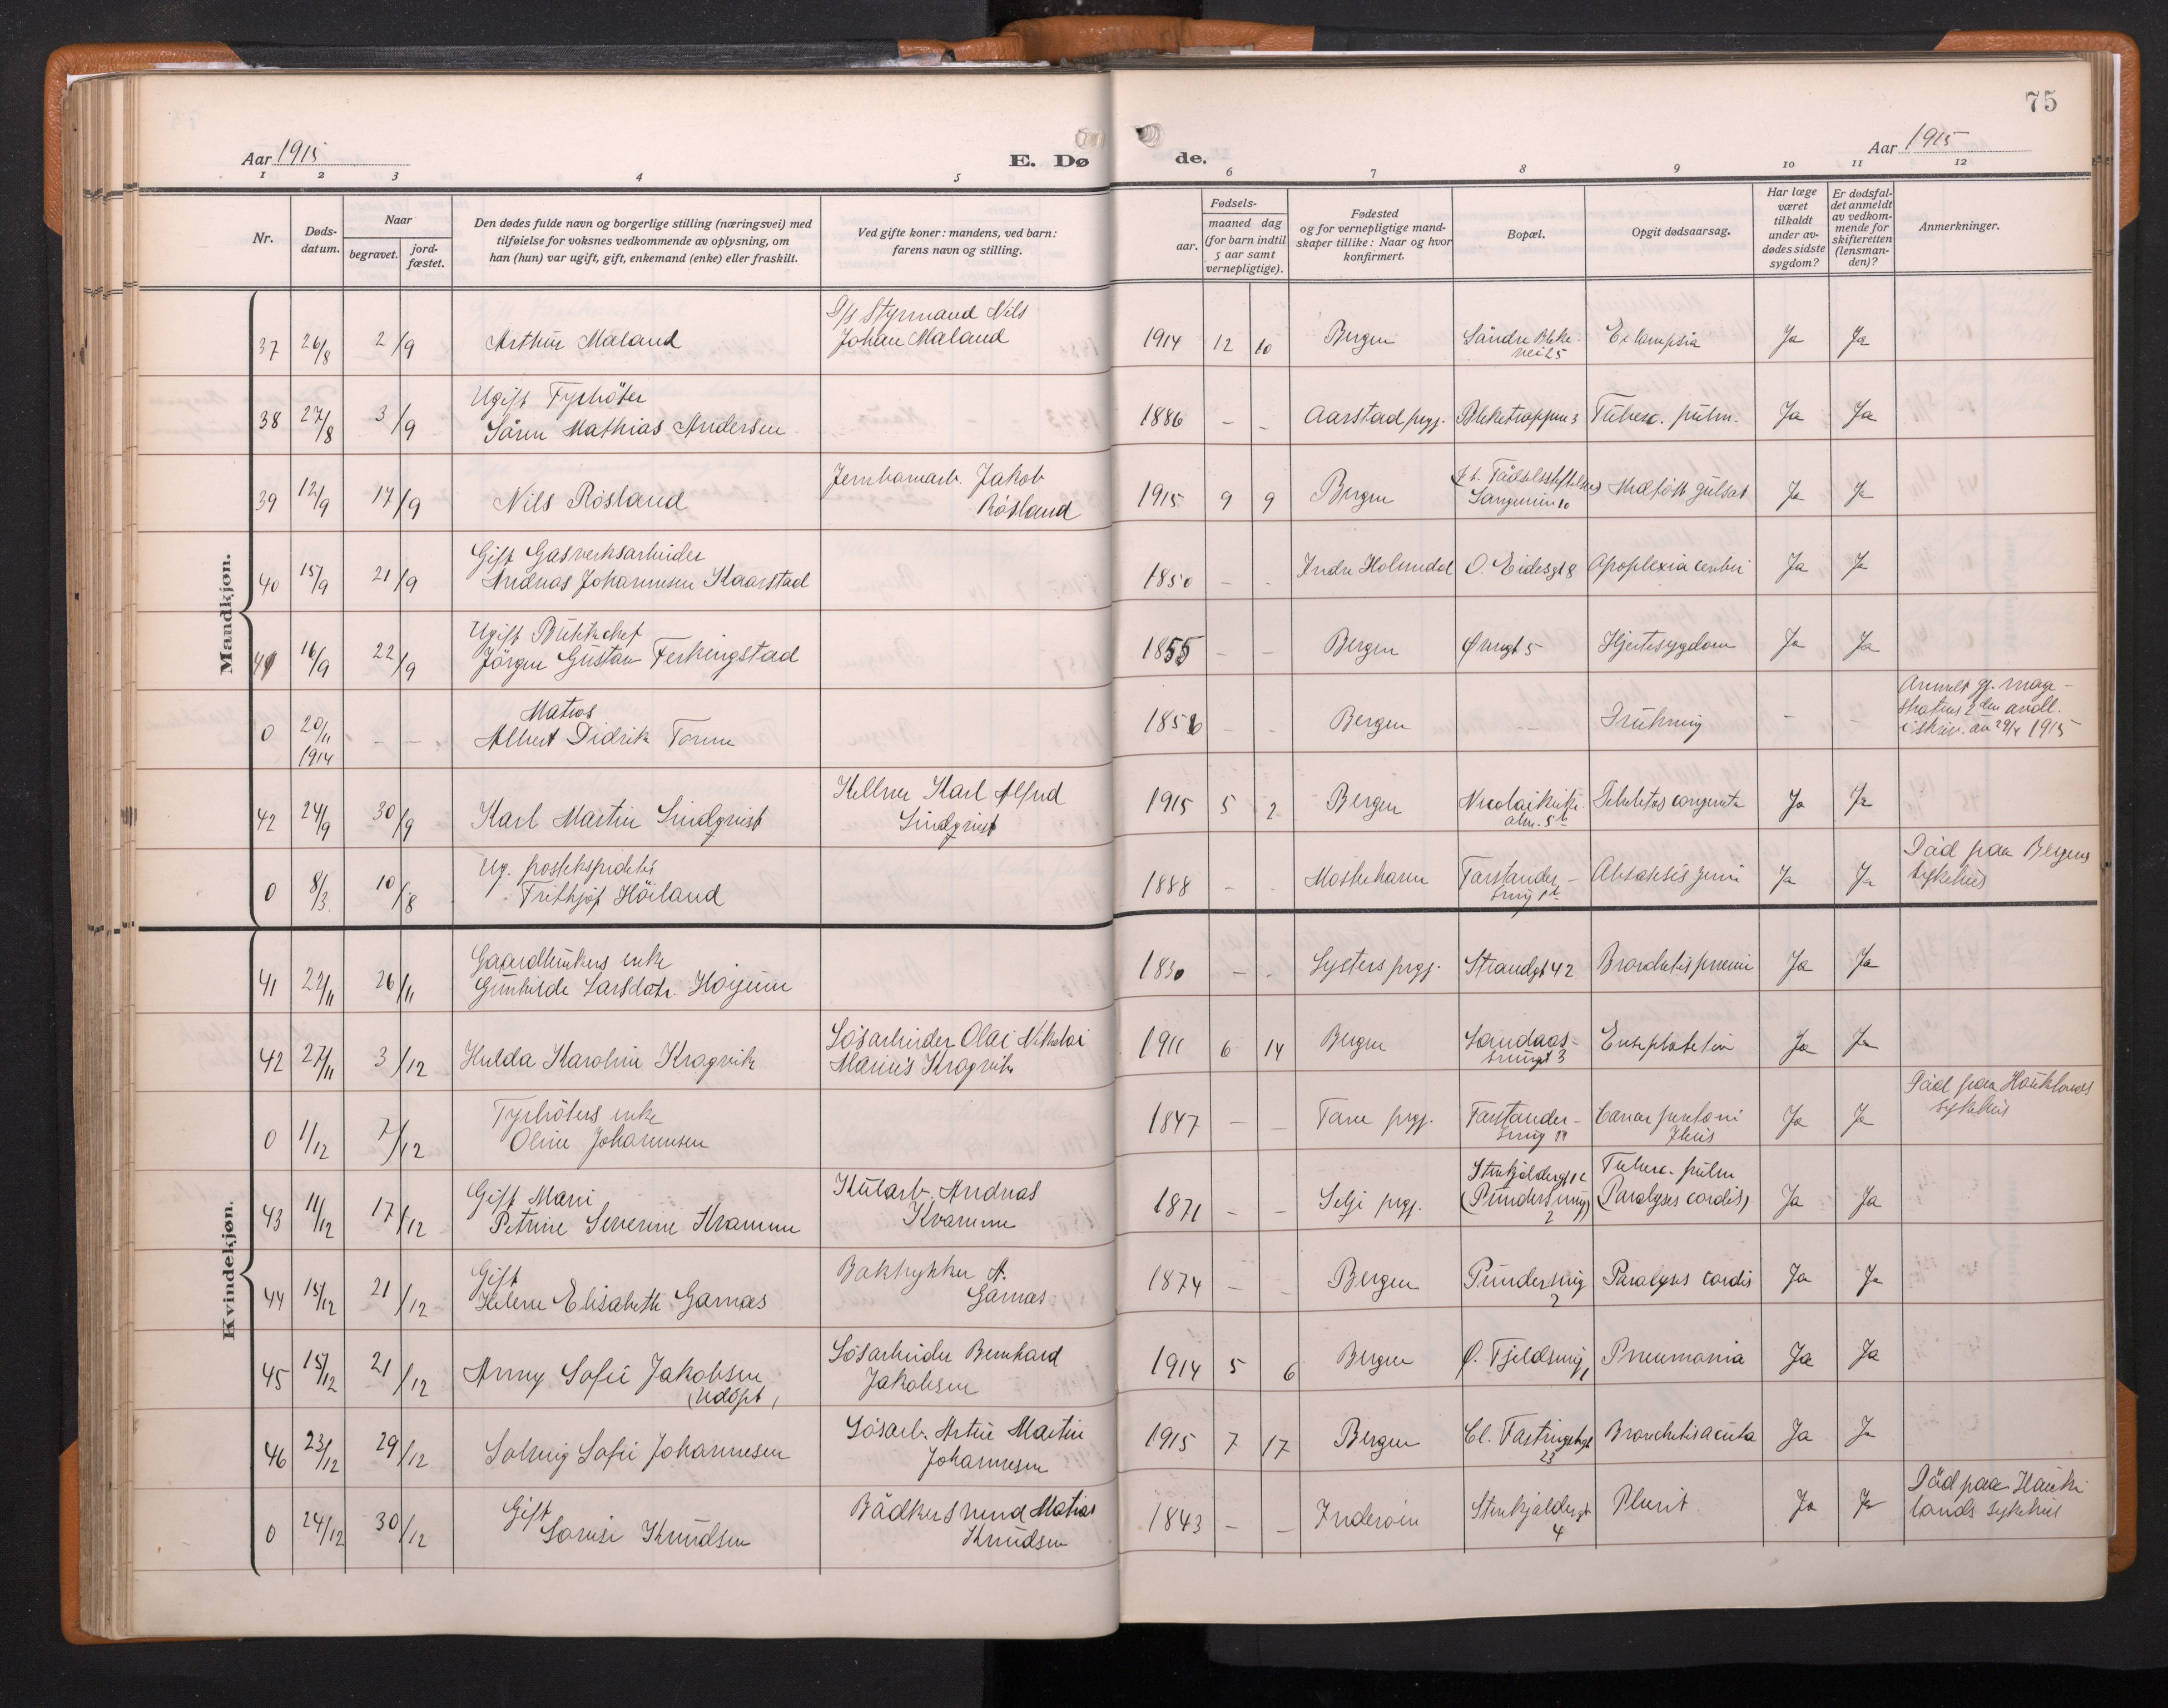 75
Aar 1915
E. Dø
de.
Aar 1915
1 2 3 4 5 6 7 8 9 10 11 12
Nr.
Døds-
datum.
Naar
begravet.
jord-
fæstet.
Den dødes fulde navn og borgerlige stilling (næringsvei) med
tilføielse for voksnes vedkommende av oplysning, om
han (hun) var ugift, gift, enkemand (enke) eller fraskilt.
Ved gifte koner: mandens, ved barn:
farens navn og stilling.
Fødsels-
aar.
maaned dag
(for barn indtil
5 aar samt
vernepligtige).
Fødested
og for vernepligtige mand-
skaper tillike: Naar og hvor
konfirmert.
Bopæl.
Opgit dødsaarsag.
Har læge
været
tilkaldt
under av-
dødes sidste
sygdom?
Er dødsfal-
det anmeldt
av vedkom-
mende for
skifteretten
(lensman-
den)?
Anmerkninger.
Mandkjøn.
37 26/8 2/9 Arthur Maland
D/s Styrmand Nils
Johan Maland
1914 12 10 Bergen Søndre Bleke
vei 25
Eclampsia Ja Ja
38 27/8 3/9 Ugift Fyrbøter
Søren Mathias Andersen
1886 - - Aarstad prgj. Bleketrappen 3 Tuberc. pulm. Ja Ja
39 12/9 17/9 Nils Røsland
Jernbanearb. Jakob
Røsland
1915 9 9 Bergen
Medfødt gulsot Ja Ja
40 15/9 21/9 Gift Gasverksarbeider
Andreas Johannesen Kaarstad
1850 - - Indre Holmedal O. Eidesgt 8 Apoplexia cerebri Ja Ja
41 16/9 22/9 Ugift Butikchef
Jörgen Gustav Ferkingstad
1855 - - Bergen Øvregt 5 Hjertesygdom Ja Ja
0 20/11 1914 - - Matros
Albert Didrik
1856 - - Bergen - Drukning - -
Anmeldt gj. mage-
stratens 2den avdl.
i skriv. av 29/4 1915
42 24/9 30/9 Karl Martin Lindqvist
Kellner Karl Alfred
Lindqvist
1915 5 2 Bergen Nicolaikirke
alm. 5b
Debilitas congenita Ja Ja
0 8/3 10/8 Ug. postekspeditør
Frithjof Höiland
1888 - - Mosterhavn Forstander-
smug 1b
Ja Ja
Död paa Bergens
sykehus
Kvindekjøn.
41 22/11 26/11 Gaardbrukers enke
Gunhilde Larsdatr. Høijum
1830 - - Lysters prgj. Strandgt 42 Ja Ja
42 27/11 3/12 Hulda Karoline Kragvik
Løsarbeider Olai Nikolai
Marius Kragvik
1911 6 14 Bergen
Ja Ja
0 1/12 7/12 Fyrbøters enke
Oline Johannesen
1847 - - Fane prgj. Forstander-
smug 11
Ja Ja
Död paa Hauklands
sykehus
43 11/12 17/12 Gift Marie
Petrine Severine Kvamme
Kularb. Andreas
Kvamme
1871 - - Selje prgj.
Stenkjeldergt 12
(Pundersmug)
2
Tuberc. pulm
(Paralyses cordis)
Ja Ja
44 15/12 21/12 Gift
Helene Elisabeth Garnæs
Boktrykker A.
Garnæs
1874 - - Bergen Pundersmug
2
Paralyses cordis Ja Ja
45 15/12 21/12 Anny Sofie Jakobsen
(Udøpt)
Løsarbeider Bernhard
Jakobsen
1914 5 6 Bergen Ø. Fjeldsmug 1 Pneumonia Ja Ja
46 23/12 29/12 Solveig Sofie Johannesen
Løsarb. Martin
Johannesen
1915 7 17 Bergen Cl. Fastingsgt
23
Bronchitis acuta Ja Ja
0 24/12 30/12 Gift
Lovise Knudsen
Bødkersvend Matias
Knudsen
1843 - - Inderøen Stenkjeldergt
4
Plevrit Ja Ja
Död paa Hauk-
lands sykehus